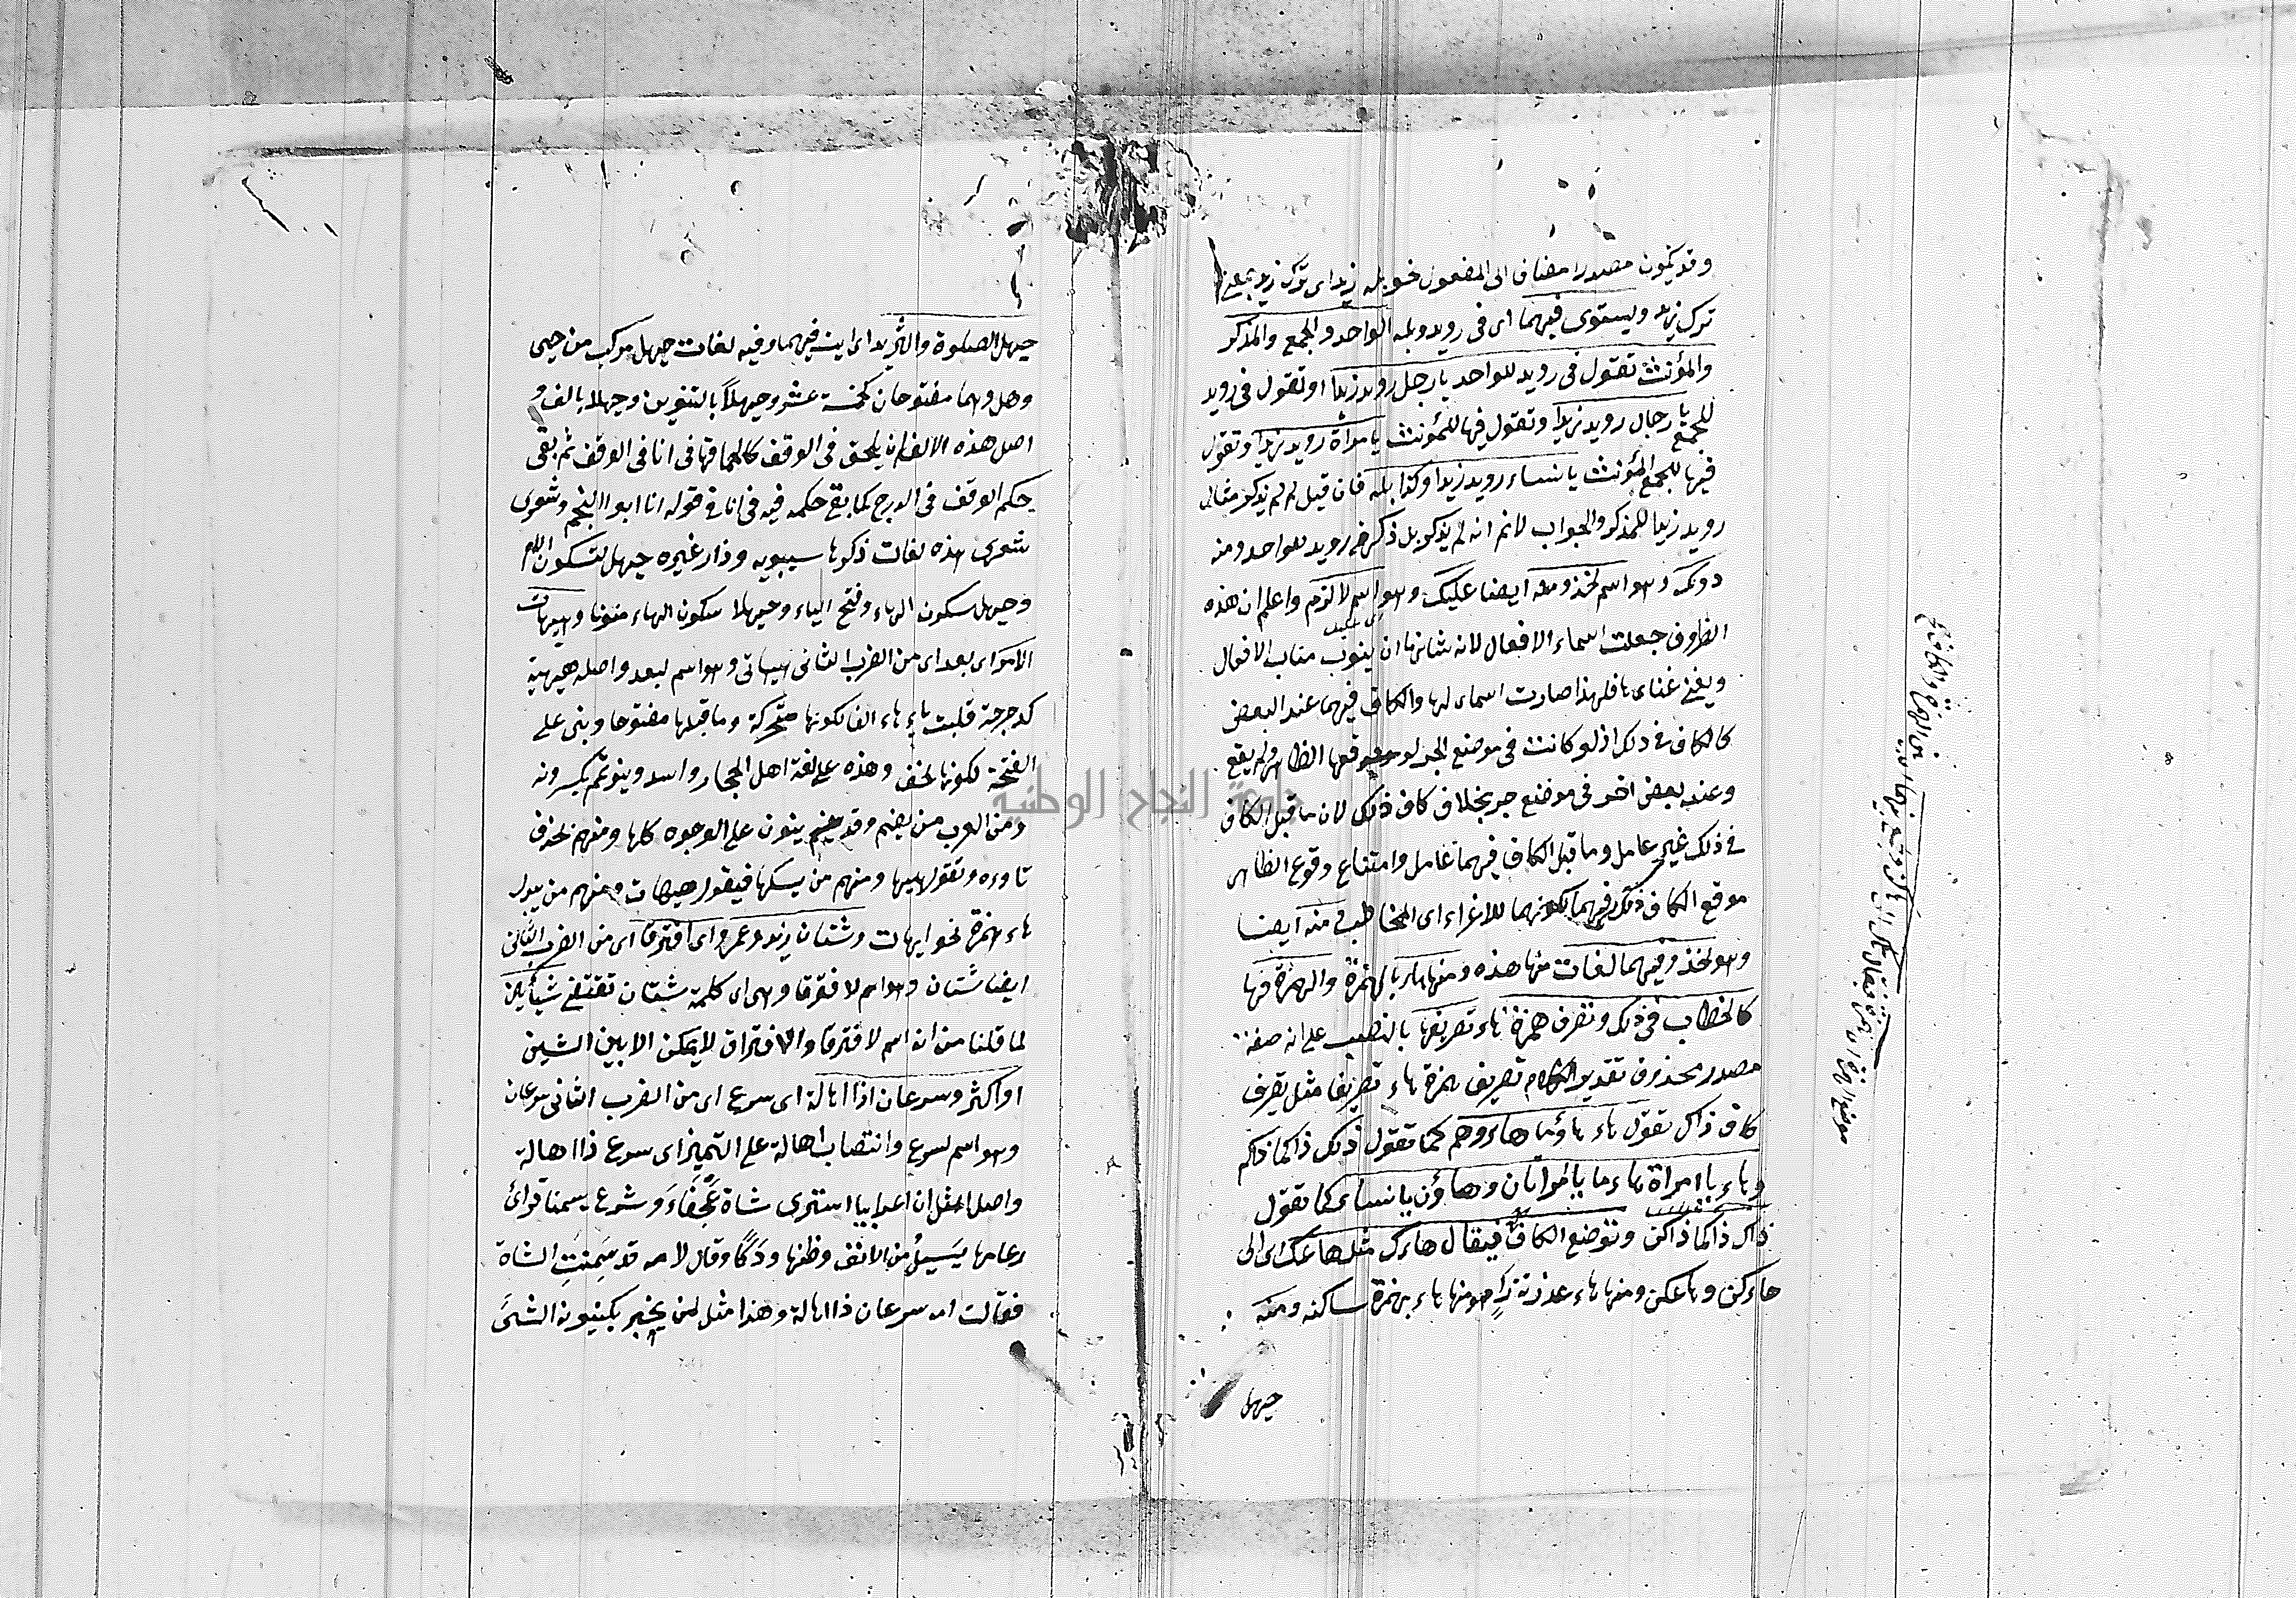 وقد يكون مصدرا مضافا الى المفعول نحو بله زيد اى ترك زيد بمعنى
ترك زيد ويستوى فيهما اى فى رويد وبله الواحد والجمع والمذكر
والمؤنث تقول فى رويد للواحد يا رجل رويد زيدا وتقول فى رويد
للجمع يا رجال رويد زيدا وتقول فيها للمؤنث يا مراة رويد زيدا وتقول
فيها للجمع المؤنث يا نساء رويد زيدا وكذا بله فان قيل لم لم يذكر مثال
رويد زيدا للمذكر والجواب لانم انه لم يذكر بل ذكر فى رويد للواحد ومنه
دونك وهو اسم لخذ ومنه ايضا عليك وهو اسم لالزم واعلم ان هذه
الظروف جعلت اسماء الافعال لانه شانها ان ينوب مناب الافعال
ويغنى غناءها فلهذا صارت اسماء لها والكاف فيهما عند البعض
كالكاف فى ذلك اذ لو كانت فى موضع الجر لوقع موقعها الظاهر ولم يقع
وعند بعض اخر فى موضع جر بخلاف كاف ذلك لان ما قبل الكاف
فى ذلك غير عامل وما قبل الكاف فيهما عامل وامتناع وقوع الظاهر
موقع الكاف فيهما لكونهما للاغراء اى المخاطب ومنه ايضا
وهو لخذ وفيهما لغات منها هذه ومنها هاء بالهمزة والهمزة فيها
كالخطاب فى ذلك وتصرف همزة هاء تصريفها بالنصب على انه صفة
مصدر محذوف تقدير الكلام تصريف همزة هاء تصريفا مثل تصرف
كاف ذاك تقول هاء هاؤما هاؤم كما تقول ذلك ذاكما ذاكم
وهاء يا امراة هاؤما يا امرأتان وهاؤن يا نساء كما تقول
ذاك ذاكما ذاكن وتوضع الكاف فيقال هاءك مثل هاعك اى الى
هاءكن وهاعكن ومنها هاء ومنها هاء بهمزة ساكنة ومنه
حيهل
حيهل الصلوة والثريد اى ايت فيهما وفيه لغات حيهل مركب من حى
وهل وهما مفتوحان كخمسة عشر وحيهلاً بالتنوين وحيهلا بالف و
اصل هذه الالف ان يلحق فى الوقف كالحاقها فى انا فى الوقف ثم بقى
حكم الوقف فى الدرج كما بقى حكمه فيه فى انا فى قوله انا ابو النجم وشعرى
شعرى هذه لغات ذكرها سيبويه وزاد غيره حيهل بسكون اللام
وحيهل بسكون الهاء وفتح الياء وحيهلا بسكون الهاء منونا وهيهات
الامر اى بعد اى من الضرب الثانى هيهات وهو اسم لبعد واصله هيهية
كدحرجة قلبت ياءها الفا لكونها متحركة وما قبلها مفتوحا وبنى على
الفتحة لكونها اخف وهذه على لغة اهل الحجاز واسد وبنو تميم يكسرونه
ومن العرب من يضم وقد ينون على الوجوه كلها ومنهم يحذف
تاءه وتقول هيها ومنهم من يسكنها فيقول هيهات ومنهم من يبدل
هاء همزة نحو ايهات وشتان زيد وعمرو اى افترقا اى من الضرب الثانى
ايضا شتان وهو اسم لافترقا وهى اى كلمة شتان تقتضى شيأين
لما قلنا من انه اسم لافترقا والافتراق لا يمكن الا بين الشيئين
او اكثر وسرعان اذا اهالة اى سرع اى من الضرب الثانى سرعان
وهو اسم لسرع وانتصاب اهالة على التمييز اى سرع ذا اهالة
واصل المثل ان اعرابيا اشترى شاة عَجْفَاءَ وشرع يسمنها فرائ
رعامها يَسِيلُ من الانف وظنها ودكًا وقال لامه قد سَمِنَتِ الشاة
فقالت امه سرعان ذا اهالة وهذا مثل لمن يخبر بكينونة الشئ
جامعة النجاح الوطنية